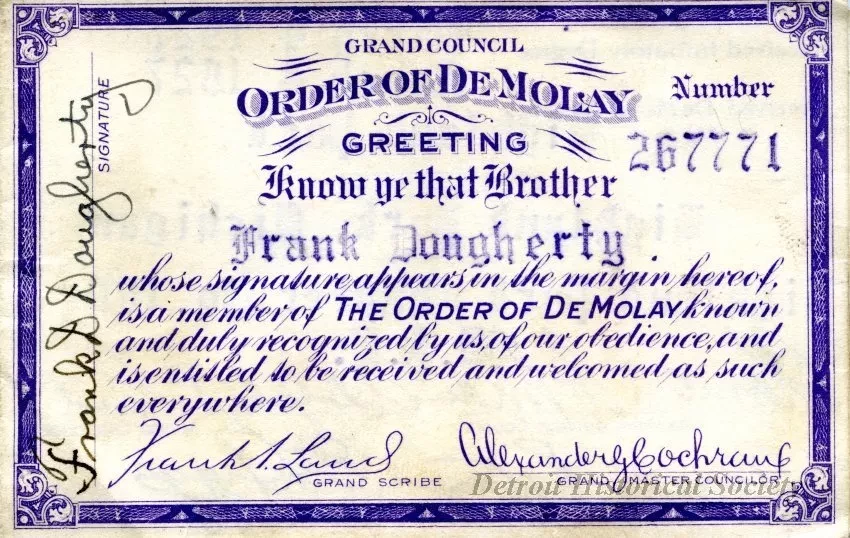 GRAND COUNCIL
ORDER OF DEMOLAY
Number
GREETING
267771
Know ye that Brother
Frank Dougherty
whose signature appears in the margin hereof,
is a member of THE ORDER OF DEMOLAY known
and duly recognized by us, of our obedience, and
is entitled to be received and welcomed as such
everywhere.
Frank S. Land
GRAND SCRIBE
Alexander G Cochran
GRAND MASTER COUNCILOR
Detroit Historical Society
SIGNATURE
Frank D Dougherty